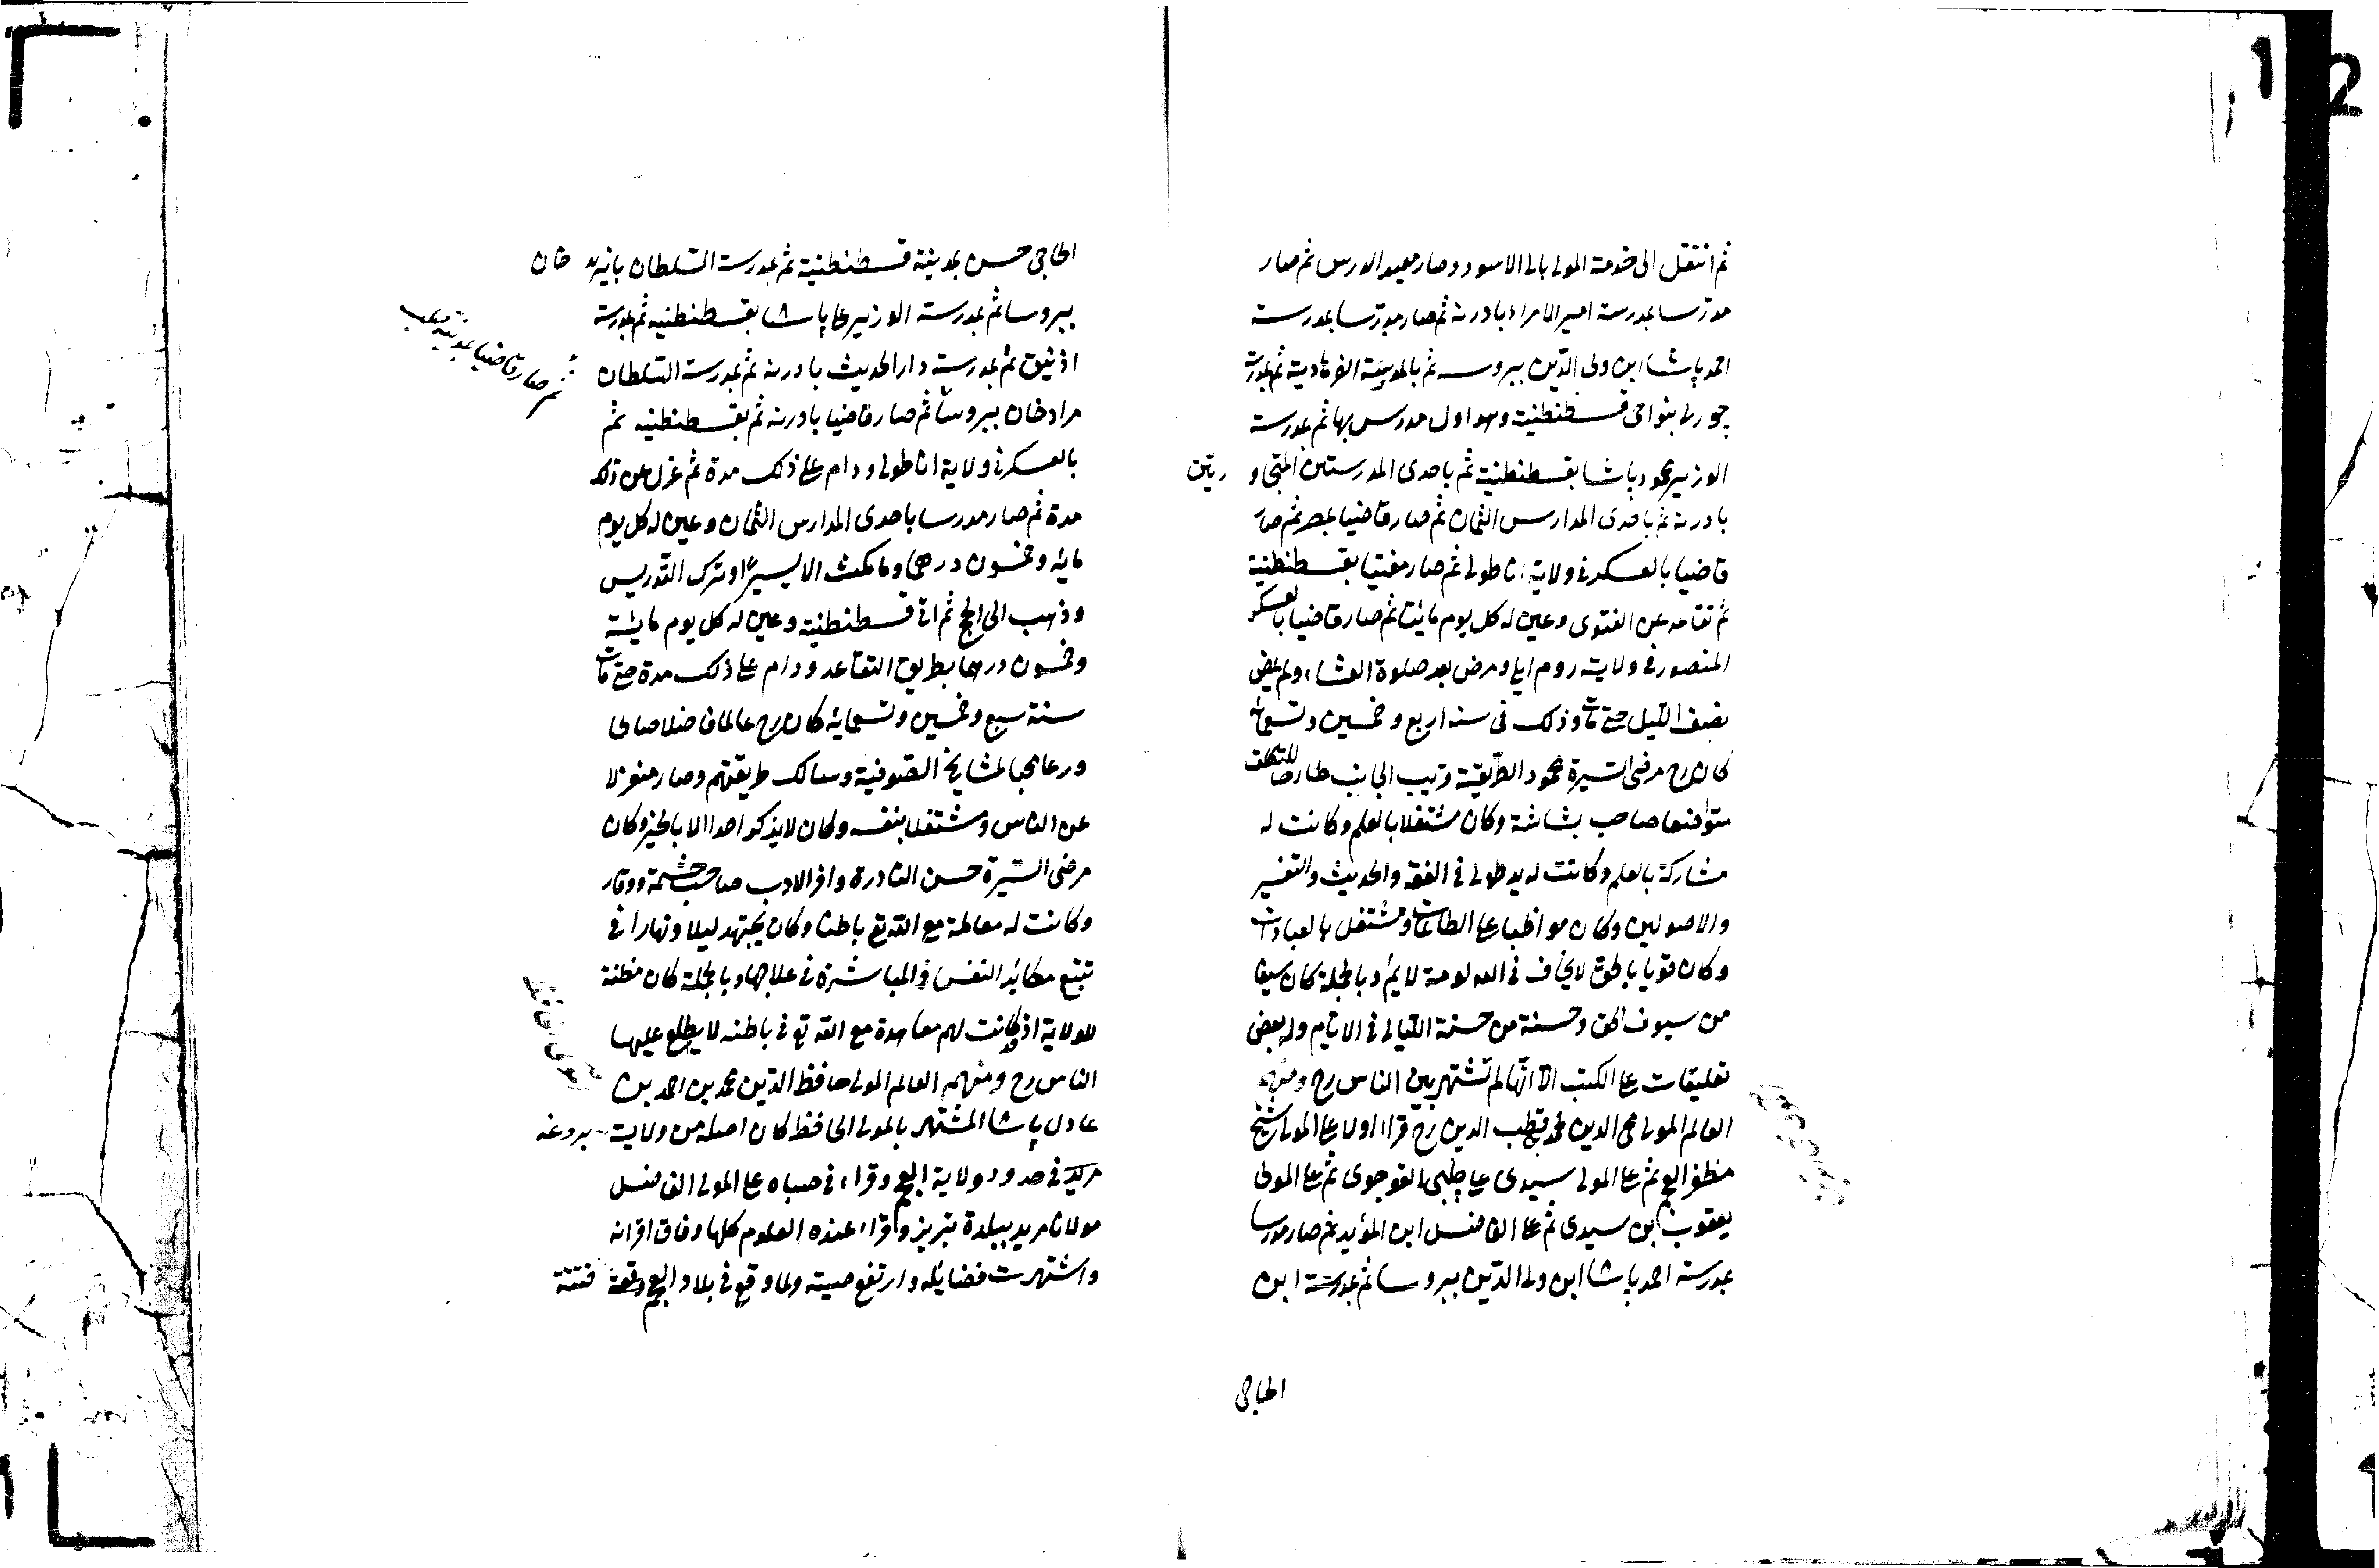 ثم انتقل الى خدمة المولى بالى الاسود وصار معيد الدرس ثم صار
مدرسا بمدرسة امير الامراء بادرنه ثم صار مدرسا بمدرسة
احمد پاشا ابن ولى الدّين ببروسه ثم بالمدرسة الفرهادية ثم بمدرسة
جورلى بنواحى قسطنطنية وهو اول مدرس بها ثم بمدرسة
الوزير محمود باشا بقسطنطنية ثم باحدى المدرستين المتجاو رتين
بادرنه ثم باحدى المدارس الثمان ثم صار قاضيا بمصر ثم صار
قاضيا بالعسكر فى ولاية اناطولى ثم صار مفتيا بقسطنطنية
ثم تقاعد عن الفتوى وعين له كل يوم مايتا ثم صار قاضيا بالعسكر
المنصور فى ولاية روم ايلى ومرض بعد صلوة العشاء ولم يمض
نصف الليل حتى مات وذلك فى سنه اربع وخمسين وتسعمائه
كان رح مرضى السّيرة محمود الطّريقة قريب الجانب طارحا للتكلف
متواضعا صاحب بشاشة وكان مشتغلا بالعلم وكانت له
مشاركة بالعلم وكانت له يد طولى فى الفقه والحديث والتفسير
والاصولين وكان مواظبا على الطاعات ومشتغل بالعبادات
وكان قويا بالحق لا يخاف فى الله لومة لايم وبالجملة كان سيفا
من سيوف الحق وحسنة من حسنة الليالى فى الايام وله بعض
تعليقات على الكتب الا انّها لم تشتهر بين الناس رح ومنهم
العالم المولى محى الدين محمد قطب الدين رح قراء اولا على المولى شيخ
مظفر العجم ثم على المولى سيدى على چلبى القوجوى ثم على المولى
يعقوب بن سيدى ثم على الفاضل ابن المؤيد ثم صار مدرسا
بمدرسة احمد پاشا ابن ولى الدّين ببروسا ثم بمدرسة ابن
الحاجى
الحاجى حسن بمدينة قسطنطنية ثم بمدرسة السّلطان بايزيد خان
ببروسا ثم بمدرسة الوزير على پاشا بقسطنطنيه ثم بمدرسة
ازنيق ثم بمدرسة دار الحديث بادرنه ثم بمدرسة السّلطان
ثم صار قاضيا بمدينة حلب
مراد خان ببروسا ثم صار قاضيا بادرنه ثم بقسطنطنيه ثم
بالعسكر فى ولاية اناطولى ودام على ذلك مدة ثم عزل عن ذلك
مدة ثم صار مدرسا باحدى المدارس الثمان وعين له كل يوم
مايه وخمسون درهما وما مكث الا يسيرًا وترك التّدريس
وذهب الى الحج ثم اتى قسطنطنية وعين له كل يوم مايئة
وخمسون درهما بطريق التقاعد ودام على ذلك مدة حتى مات
سنة سبع وخمسين وتسعمايه كان رح عالما فاضلا صالحا
ورعا محبا لمشايخ الصّوفية وسالك طريقتهم وصار منعزلا
عن الناس ومشتغلا بنفسه وكان لا يذكر احدا الا بالخير وكان
مرضى السّيرة حسن النادرة وافر الادب صاحب حشمة ووقار
وكانت له معاملة مع الله تع باطنا وكان يجتهد ليلا ونهارا فى
تتبع مكايد النفس والمباشرة فى علاجها وبالجملة كان مظنة
للولاية اذ قد كانت لهم معاهدة مع الله تع فى باطنه لا يطلع عليها
الناس رح ومنهم العالم المولى حافظ الدّين محمد بن احمد بن
عادل پاشا المشتهر بالمولى الحافظ كان اصله من ولاية بردعه
مريد فى حدود ولاية العجم وقراء فى صباه على المولى الفاضل
مولانا مريد ببلدة تبريز وقراء عنده العلوم كلها وفاق اقرانه
واشتهرت فضايله وارتفع صيته ولما وقع فى بلاد العجم وقعة فتنة